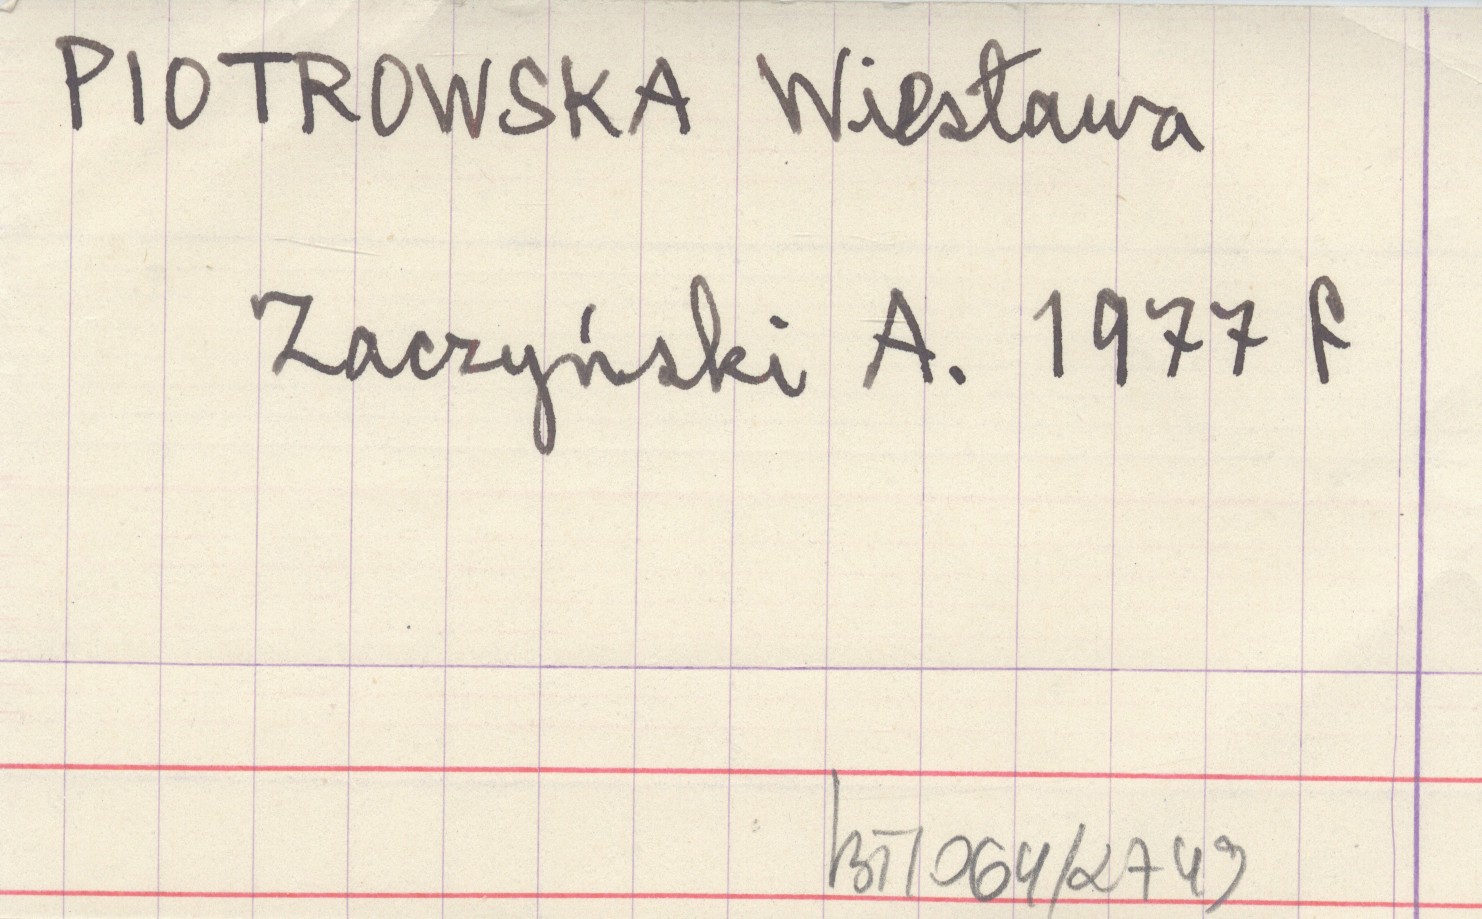 PIOTROWSKA Wiesława
Zaczyński A. 1977 f
BT/064/2749